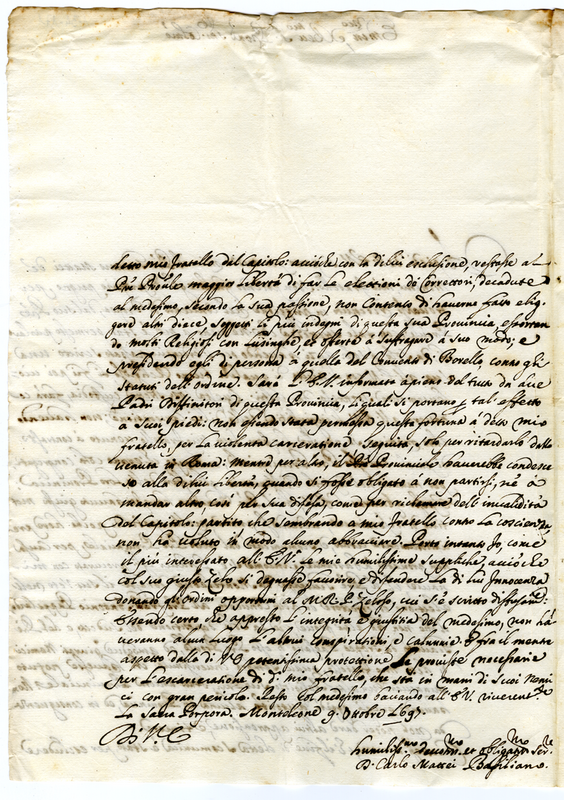 detto mio fratello dal Capitolo: acciòche con la di lui esclusione, restasse al
Pre Pronle maggior libertà di far le elettioni de Correttori, decadute
al medesimo, secondo la sua passione, non contento di haverne fatto elig-
gere altri diece, soggetti li più indegni di questa sua Provincia, esortan
do molti Religiosi con lusinghe, et offerte à suffragare à suo modo; e
presidendo egli di persona à quella del Convento di Borello, contro gli
statuti dell'ordine. Sarà l'E.V. informata à pieno del tutto da due
Padri Diffinitori di questa Provincia, li quali si portano p tal effetto
à suoi piedi: non essendo stata permessa questa fortuna à detto mio
fratello, per la violenta carceratione seguita, solo per ritardarli dalla
venuta in Roma: mentre per altro, il Pre Provinciale haverebbe condesce
so alla di lui libertà, quando si fosse obligato à non partirsi, nè à
mandar altro, così per sua difesa, come per richiamo dell'invalidità
del Capitolo: partito che sembrando à mio fratello contro la coscienza,
non hà voluto in modo alcuno abbracciare. Porto intanto Io, come
il più interessato all'E.V. le mie humilissime suppliche, acciòche
col suo giusto zelo si degnasse favorire, e difendere la di lui innocenza
donando gl'ordini opportuni al M.R.P. Zeloso, cui s'è scritto
Essendo certo che appresso l'integrità e giustitia del medesimo, non hà-
veranno alcun luogo l'altrui conspirationi, e calunnie. E frà il mentre
aspetto dalla di V.E. potentissima protettione le proviste necessarie
per l'escarceratione di d. mio fratello, che stà in mani di suoi Nemi
ci con gran pericolo. Resto col medesimo baciando all'E.V. riverentte
la Sacra Porpora. Monteleone 9. Ottobre 1697.
Di V.E.
humilissno devotmo et obligatmo Serre
D. Carlo Mattei Basiliano.